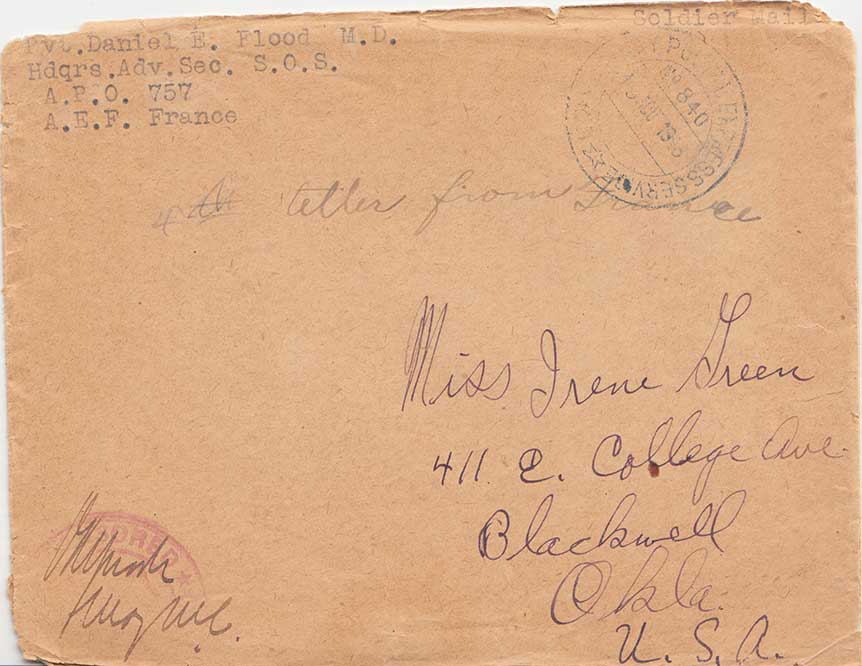 Soldier Mail
Pvt. Daniel E. Flood M.D.
Hdqrs.Adv.Sec. S.O.S.
A.P.O. 757
A.E.F. France
No 840
4th letter from France
Miss Irene Green
411 E. College Ave.
Blackwell
Okla.
U. S. A.